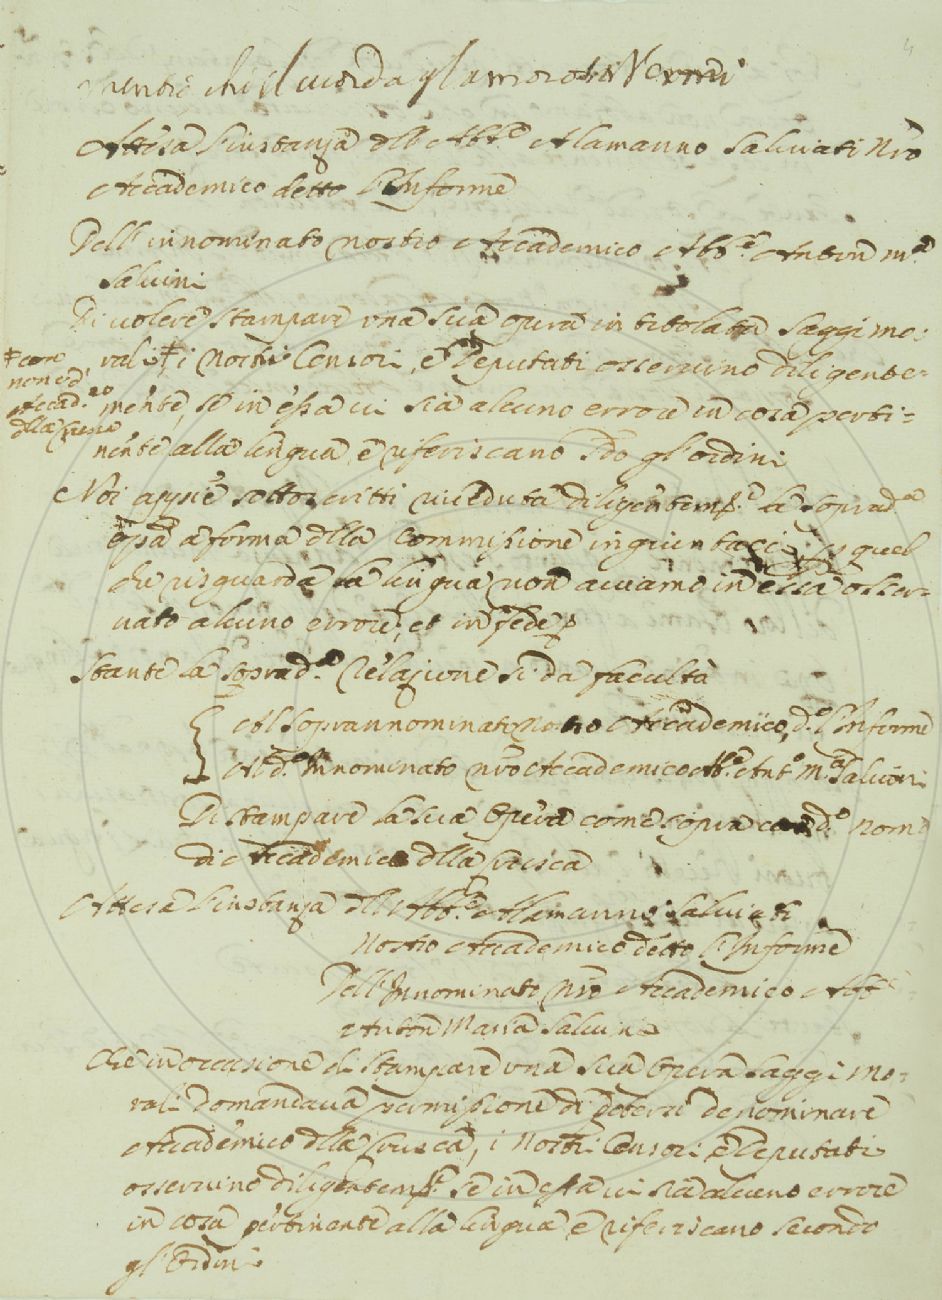 4
che si ricorda gl'amorosi Vermi
Attesa l'instanza dell Abb.e Alamanno Salviati Nro
Accademico detto l'Informe
Dell' innominato nostro Accademico Abb.e Anton M.a
Salvini
Di volere stampare una sua opera intitolata Saggi mo-
rali ‡ i nostri Censori, e Deputati osservino diligente-
‡ con
nome d'
Accad.co
dlla Crusca
mente, se in essa vi sia alcuno errore in cosa perti=
nente alla lingua e riferiscano sdo gl'ordini
Noi appiè sottoscritti riveduta diligentem.e la soprad.a
opra a forma dlla Commissione in quel
che risguarda la lingua non aviamo in essa osser-
vato alcuno errore, et in fede
Stante la soprad.a Relazione si dà facultà
Al soprannominato Nostro Accademico, d.o l'Informe
Al d.o Innominato nro Accademico Abb.e Ant.o M.a Salvini
Di stampare la sua Opera come sopra con d.o nome
di Accademico dlla Crusca
Attesa l'instanza dll Abb.e Alamanno Salviati
Nostro Accademico detto l'Informe
Dell' Innominato Nro Accademico Abb.e
Anton Maria Salvini
Che in occasione di stampare una sua Opera Saggi mo-
rali domandava permissione di potersi denominare
Accademico dlla Crusca, i Nostri Censori e Deputati
osservino diligentem.e se in essa vi sia alcuno errore
in cosa pertinente alla lingua e riferiscano secondo
gl'Ordini